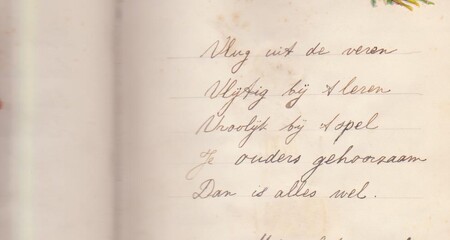 Vlug uit de veren
Vlijtig bij 't leren
Vroolijk bij 't spel
Je ouders gehoorzaam
Dan is alles wel.